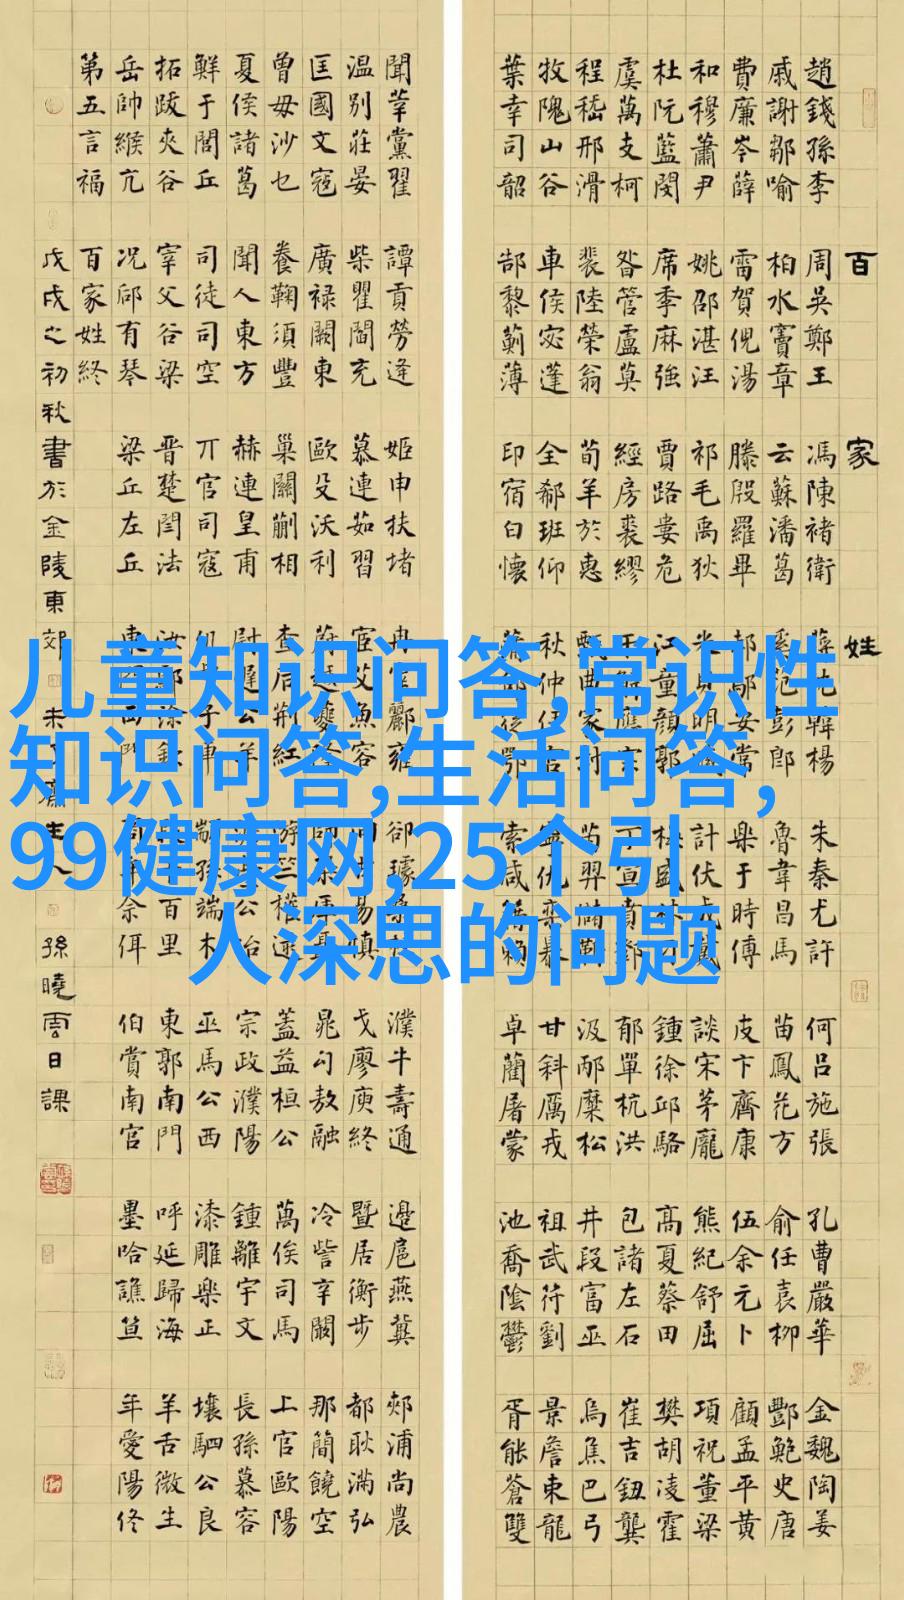 百家姓
趙錢孫李 周吳鄭王 馮陳褚衛 蔣沈韓楊 朱秦尤許 何呂施張 孔曹嚴華 金魏陶姜
戚謝鄒喻 柏水竇章 云蘇潘葛 奚范彭郎 魯韋昌馬 苗鳳花方 俞任袁柳 酆鮑史唐
費廉岑薛 雷賀倪湯 滕殷羅畢 郝鄔安常 樂于時傅 皮卞齊康 伍余元卜 顧孟平黃
和穆蕭尹 姚邵湛汪 祁毛禹狄 米貝明 計伏成戴 談宋茅龐 熊紀舒屈 項祝董梁
杜阮藍閔 席季麻強 賈路婁危 江童顏郭 梅盛林 鍾徐邱駱 高夏蔡田 樊胡凌霍
虞萬支柯 昝管盧莫 經房裘繆 解應宗 丁宣賁鄧 郁單杭洪 包諸左石 崔吉鈕龔
程嵇邢滑 裴陸榮翁 荀羊於惠 甄曲家封 芮羿儲靳 汲邴糜松 井段富巫 烏焦巴弓
牧隗山谷 車侯宓蓬 全郗班仰 秋仲伊宮 寧仇欒暴 甘斜厲戎 祖武符劉 景詹束龍
葉幸司韶 郜黎薊薄 印宿白懷 蒲邰從鄂 索咸籍賴 卓藺屠蒙 池喬陰鬱 胥能蒼雙
聞莘黨翟 譚貢勞逄 姬申扶堵 冉宰酈雍 郤璩桑 濮牛壽通 邊扈燕冀 郟浦尚農
温別莊晏 柴瞿閻充 慕連茹習 宦艾魚容 向古易慎 戈廖庾終 暨居衡步 都耿滿弘
匡國文寇 廣祿闕東 歐殳沃利 蔚越夔隆 師 聶 晁勾敖融 冷訾辛闞 那簡饒空
曾毋沙乜 養鞠須豐 巢關蒯相 查后荊紅 游竺權逯 蓋益桓公 萬俟司馬 上官歐陽
夏侯諸葛 聞人東方 赫連皇甫 尉遲公羊 公冶 宗政濮陽 鍾離宇文 長孫慕容
鮮于閭丘 司徒司空 丌官司寇 子車 顓孫端木 巫馬公西 漆雕樂正 壤駟公良
拓跋夾谷 宰父谷梁 晉楚閆法 汝鄢涂欽 百里 東郭南門 呼延歸海 羊舌微生
岳帥緱亢 况郈有琴 梁丘左丘 東門西門 商牟佘佴 伯賞南宮 墨哈譙笪 年愛陽佟
第五言福 百家姓終
戊戌之初秋書於金陵東郊未了齋主人孫曉雲日課
儿童知识问答,常识性
知识问答,生活问答,
99健康网,25个引
人深思的问题